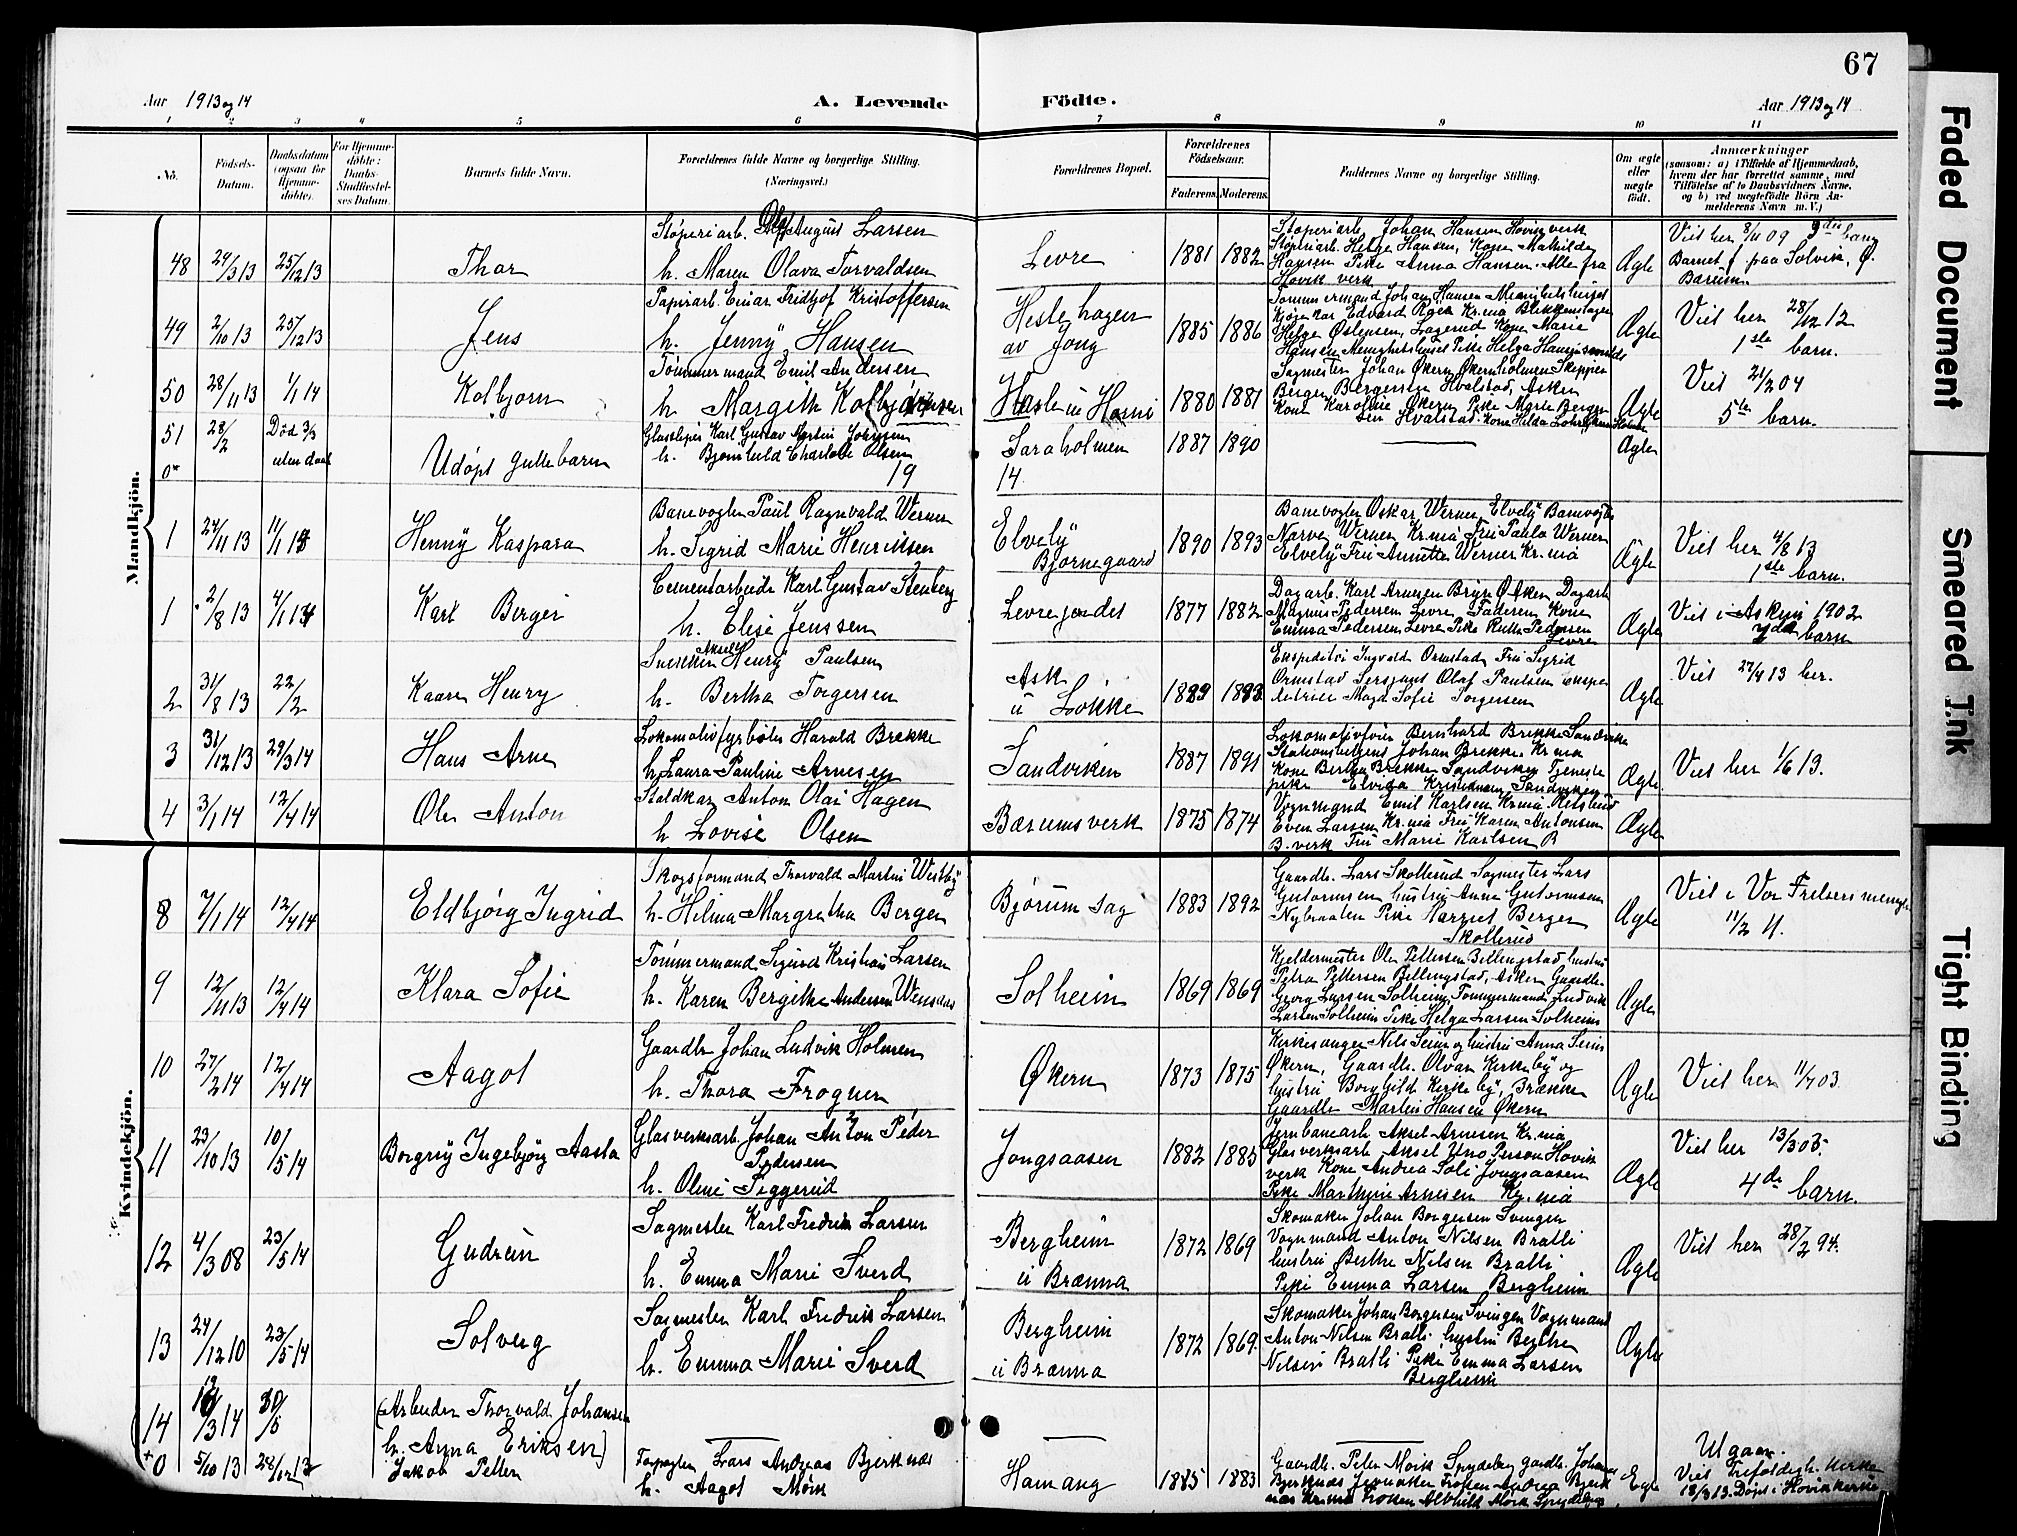 67
Aar 1913 og 14
A. Levende Födte.
Aar 1913 og 14
1 2 3 4 5 6 7 8 9 10 11
No.
Födsels-Datum.
Daabsdatum (ogsaa for Hjemmedöbte).
For Hjemmedöbte: Daabs-Stadfestelses Datum.
Barnets fulde Navn.
Forældrenes fulde Navne og borgerlige Stilling. (Næringsvei.)
Forældrenes Bopæl.
Forældrenes Födselsaar.
Faderens. Moderens.
Faddernes Navne og borgerlige Stilling.
Om ægte eller uægte födt.
Anmærkninger
(saasom: a) i Tilfælde af Hjemmedaab, hvem der har forrettet samme, med Tilföielse af to Daabsvidners Navne, og b) ved uægtefödte Börn Anmelderens Navn m. V.)
Mandkjön.
48 24/3 13 25/12 13 Thor
Støperiarb. Olaf August Larsen
h. Maren Olava Torvaldsen
Levre 1881 1882
Støperiarb. Johan Hansen Høvig verk
Støperiarb. Helge Hansen, Kone Mathilde
Hansen Pike Anna Hansen. Alle fra
Høvik verk
Ægte
Viet her 8/11 09 3die barn
Barnet f. paa Solvik, Ø.
Bærum.
49 2/10 13 25/12 13 Jens
Papirarb. Einar Fridtjof Kristoffersen
h. Jenny Hansen
Hestehagen
av Jong
1885 1886
Tømmermand Johan Hansen Menighetshuset
Edvard Kr.nia
Helge Østensen, Kone Marie
Hansen Menighetshuset Pike Helga
Ægte
Viet her 28/12 12
1ste barn.
50 28/11 13 1/1 14 Kolbjørn
Tømmermand Emil Andersen
h. Margith Kolbjørnsen
Hasle u Horni
1880 1881
Sagmester Johan Økern Økernholmen Skipper
Berger Bergersen Hvalstad, Asker
Kone Karoline Økern Pike Marte Bergersen
Hvalstad. Kone Hilda
Ægte
Viet 21/2 04
5te barn.
51 28/2 Død 3/3 uten daab
Udøpt guttebarn
Glassliper Karl Gustav Martin
h. Charlotte Olsen
Saraholmen 1887 1890 Ægte
0*
19 14.
1 24/11 13 11/1 14 Henny Kaspara
Banevogter Paul Ragnvald Werner
h. Sigrid Marie Henriksen
Elvely
Bjørnegaard
1890 1893
Banevogter Oskar Werner, Elvely Banevogter
Narve Werner Kr.nia Fru Paula Werner
Elvely Fru Annette Werner Kr.nia
Ægte
Viet her 4/8 13
1ste barn.
1 2/8 13 4/1 14 Karl Berger
Cementarbeider Karl Gustav Stenberg
h. Elise Jenssen
Levrejordet 1877 1882
Dagarb. Karl Arnesen Bryn Ø. Asker, Dagarb
Magnus Pedersen Levre, Faderen, Kone
Emma Pedersen Levre Pike Ruth Pedersen
Levre
Ægte
Viet i Askim 1902
7de barn
2 31/8 13 22/2 Kaare Henry
Snekker Aksel Henry Paulsen
h. Bertha Torgersen
Ask
u Løkke
1889 1893
Ekspeditør Ingvald Ormstad Fru Sigrid
Ormstad Sersjant Olaf Paulsen Ekspe
ditrice Magda Sofie Torgersen
Ægte
Viet 27/4 13 her.
3 31/12 13 29/3 14 Hans Arne
Lokomotivfyrbøter Harald Brekke
h. Laura Pauline Arnesen
Sandviken 1887 1891
Lokomotivfører Bernhard Brekke Sandviken
Stationsbetjent Johan Brekke. Kr.nia
Kone Bertha Brekke Sandviken Tjeneste
pike Elvida Kristiansen Sandviken
Ægte
Viet her 1/6 13.
4 3/1 14 12/4 14 Ole Anton
Staldkar Anton Olai Hagen
h. Lovise Olsen
Bærumsverk 1875 1874
Vognmand Emil Karlsen Kr.nia
Even Larsen Kr.nia Fru Karen Antonsen
B. verk Fru Marie Karlsen B
Ægte
Kvindekjön.
8 7/1 14 12/4 14 Eldbjørg Ingrid
Skogsformand Thorvald Martin Westby
h. Helma Margretha Berger
Bjørum sag 1883 1892
Gaardbr. Lars Skollerud Sagmester Lars
Gutormsen hustru Anna Gutormsen
Nybraaten Pike Harriet Berger
Skollerud
Ægte
Viet i Vor Frelsers menigh
11/2 11.
9 12/11 13 12/4 14 Klara Sofie
Tømmermand Sigurd Kristian Larsen
h. Karen Bergithe Andersen
Solheim 1869 1869
Kjeldermester Ole Pettersen Billingstad hustru
Petra Pettersen Billingstad, Asker Gaardbr.
Georg Larsen Solheim, Tømmermand Ludvik
Larsen Solheim Pike Helga Larsen Solheim
Ægte
10 27/2 14 12/4 14 Aagot
Gaardbr Johan Ludvik Holmen
h. Thora Frogner
Økern 1873 1875
Kirkesanger Nils Seim og hustru Anna Seim
Økern, Gaardbr. Olvar Kirkeby og
hustru Borghild Kirkeby, Brækne
Gaardbr Martin Hansen Økern
Ægte
Viet her 11/7 03.
11 23/10 13 10/5 14 Borgny Ingebjørg Aasta
Glasverksarb. Johan Anton Peder
Pedersen
h. Oline Tiggerud
Jongsaasen 1882 1885
Jernbanearb Aksel Arnesen Kr.nia
Glasverksarb Aksel Uno Person Høvik
verk Kone Andrea Soli Jongsaasen
Pike Marthine Arnesen Kr.nia
Ægte
Viet her 13/3 05.
4de barn.
12 4/3 08 23/5 14 Gudrun
Sagmester Karl Fredrik Larsen
h. Emma Marie Sverd
Bergheim
u Brænna
1872 1869
Skomaker Johan Borgersen Svingen
Vognmand Anton Nilsen Bratli
hustru Berthe Nilsen Bratli
Pike Emma Larsen Bergheim
Ægte
Viet her 28/2 94.
13 24/12 10 23/5 14 Solveig
Sagmester Karl Fredrik Larsen
h. Emma Marie Sverd
Bergheim
u Brænna
1872 1869.
Skomaker Johan Borgersen Svingen Vognmand
Anton Nilsen Bratli hustru Berthe
Nilsen Bratli Pike Emma Larsen
Bergheim
Ægte
14 /3 14 31/5
(Arbeider Thorvald Johansen
h. Anna Eriksen)
Utgaar.
+0 5/10 13 28/12 13 Jakob Petter
Forpagter Lars Andreas Bjerknes
h. Aagot Mørk
Hamang 1885 1883
Gaardb. Peter Mørk Spydeberg gaardb. Johannes
Bjerknes Jevnaker Frøken Andrea Bjerk
nes Kr.nia Frøken Alvhild Mørk Spydeberg
Egte
Viet Trefoldigh. kirke
13/3 13. Døpt i Høvik kirke
Faded Document
Smeared Ink
Tight Binding